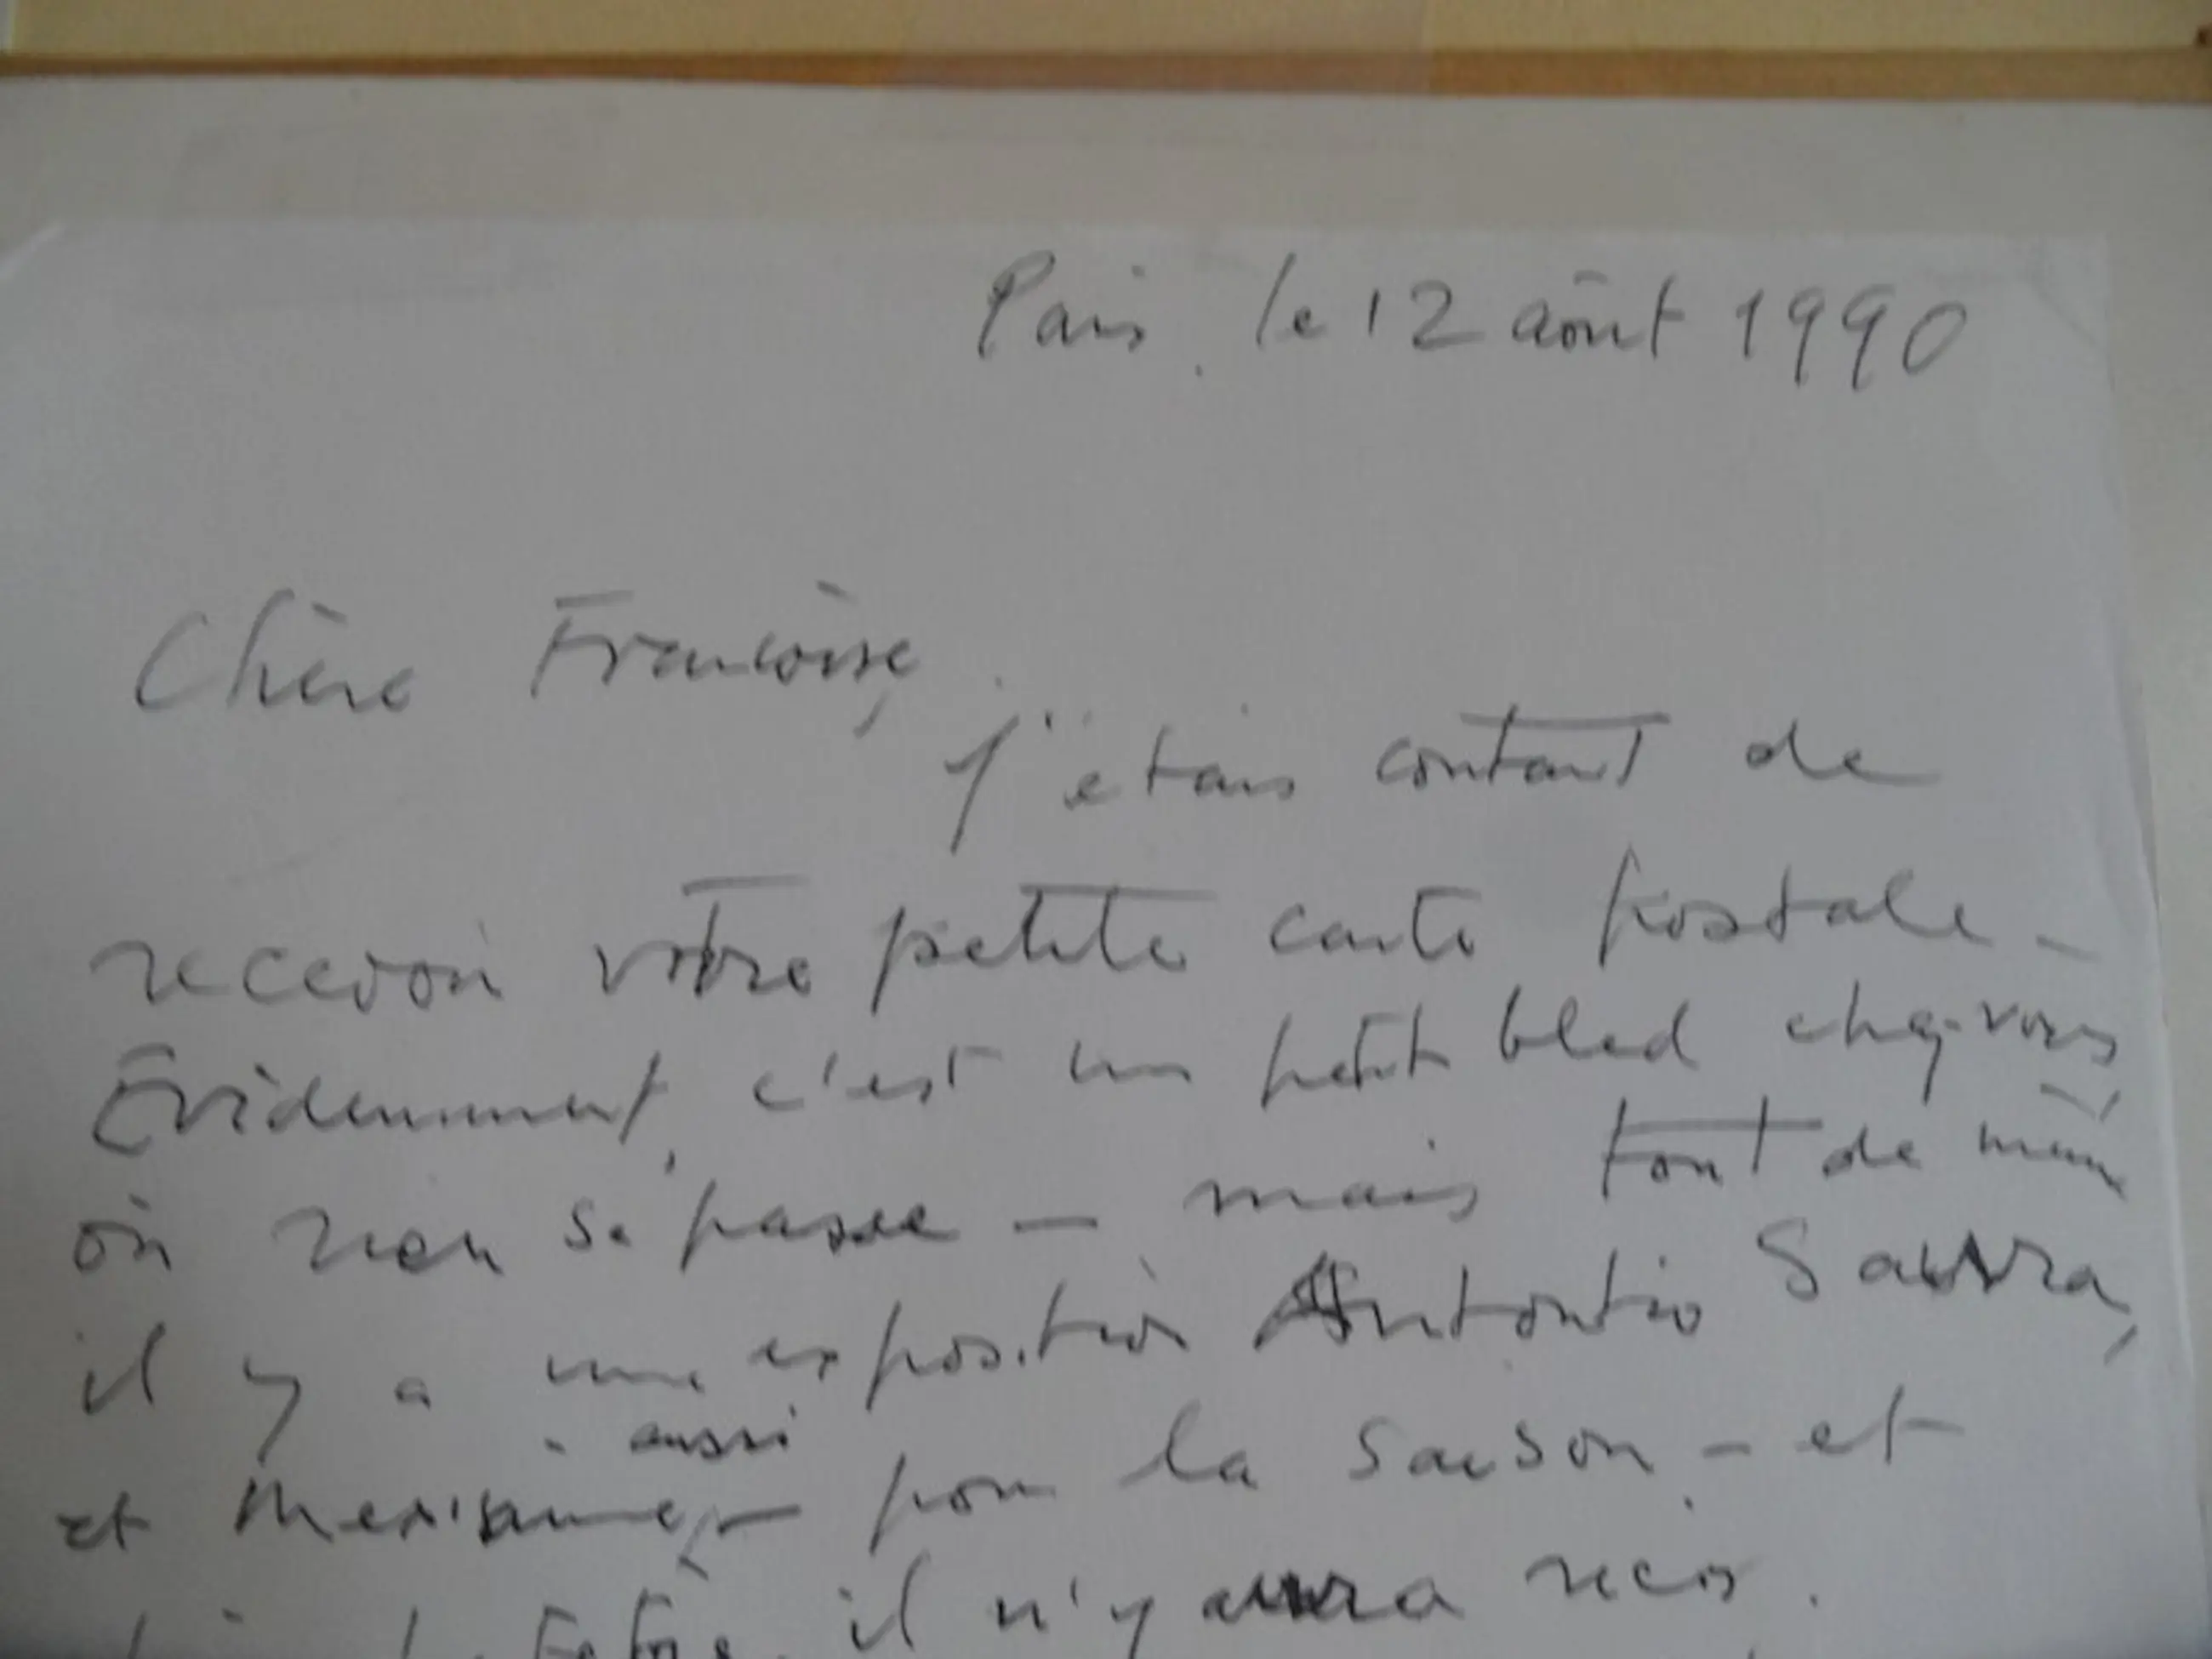 Paris, le 12 août 1990
Chère Françoise,
J'étais contant de
recevoir votre petite carte postale -
Evidemment, c'est un petit bled chez-vous,
où rien se passe — mais tout de même
il y a une exposition Antontio Saura,
aussi
et pour la saison - et
il n'y aura rien.